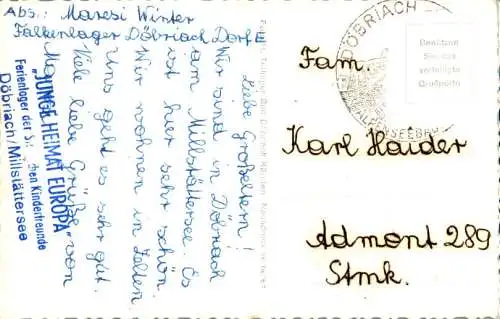 Abs.: Maresi Winter
Falkenlager Döbriach Dorf E
Liebe Großeltern!
Wir sind in Döbriach
am Millstättersee. Es
ist hier sehr schön.
Wir wohnen in Zelten.
Uns geht es sehr gut.
Viele liebe Grüße von
"JUNGE HEIMAT EUROPA"
Ferienlager der
chen Kinderfreunde
Döbriach/Millstättersee
DÖBRIACH
Fam.
Karl Haider
Admont 289
Stmk.